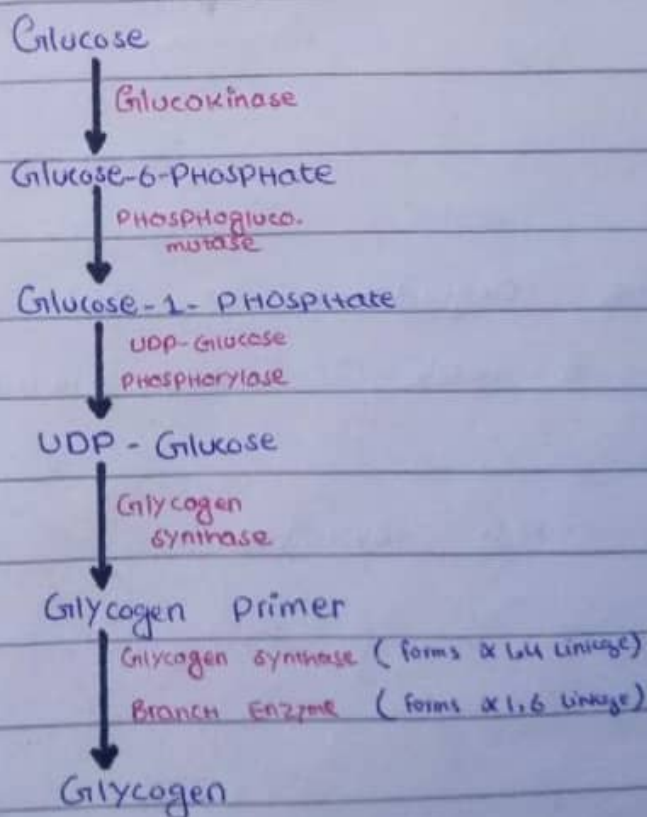 Glucose
Glucokinase
Glucose-6-PHosPHate
PHosPHogluco.
mutase
Glucose-1-PHosPHate
UDP-Glucose
PHosPHorylase
UDP - Glucose
Glycogen
synthase
Glycogen Primer
Glycogen synthase ( forms α 1,4 Linkage)
Branch Enzyme ( forms α 1,6 Linkage)
Glycogen